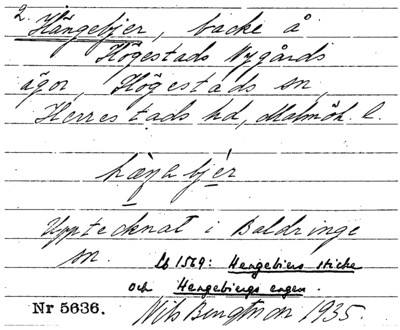 2.
Hängebjer, backe å
Högestads Nygårds
ägor, Högestads sn,
Herrestads hd, Malmöh. l.
hæŋa bjér
Upptecknat i Baldringe
sn. Lb 1569: Hengebiers sticke
och Hengebiergs engen.
Nr 5636. Nils Bengtsson 1935.